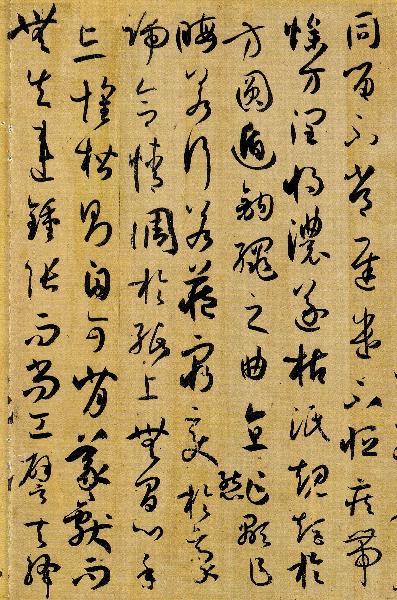 同留不常遲遣不恒疾帶
燥方潤將濃遂枯泯規矩於
方圓遁鉤繩之曲直乍顯乍
晦若行若藏窮變態於豪
端合情調於紙上無間心手
忘懷楷則自可背羲獻而
無失違鍾張而尚工譬夫絳